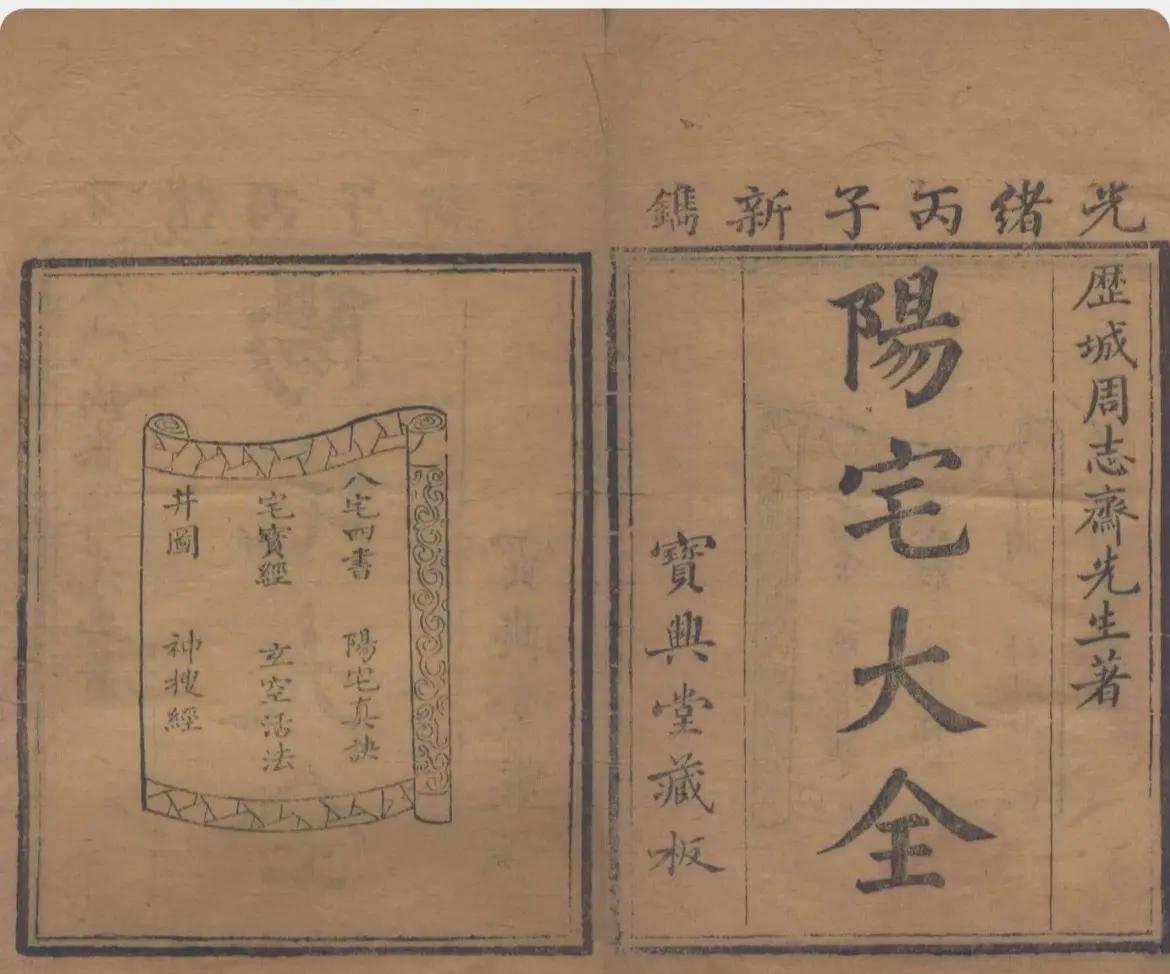 光緒丙子新鐫
歴城周志齋先生著
陽宅大全
寶興堂藏板
八宅四書 陽宅真訣
宅寳經 玄空活法
井圖 神搜經